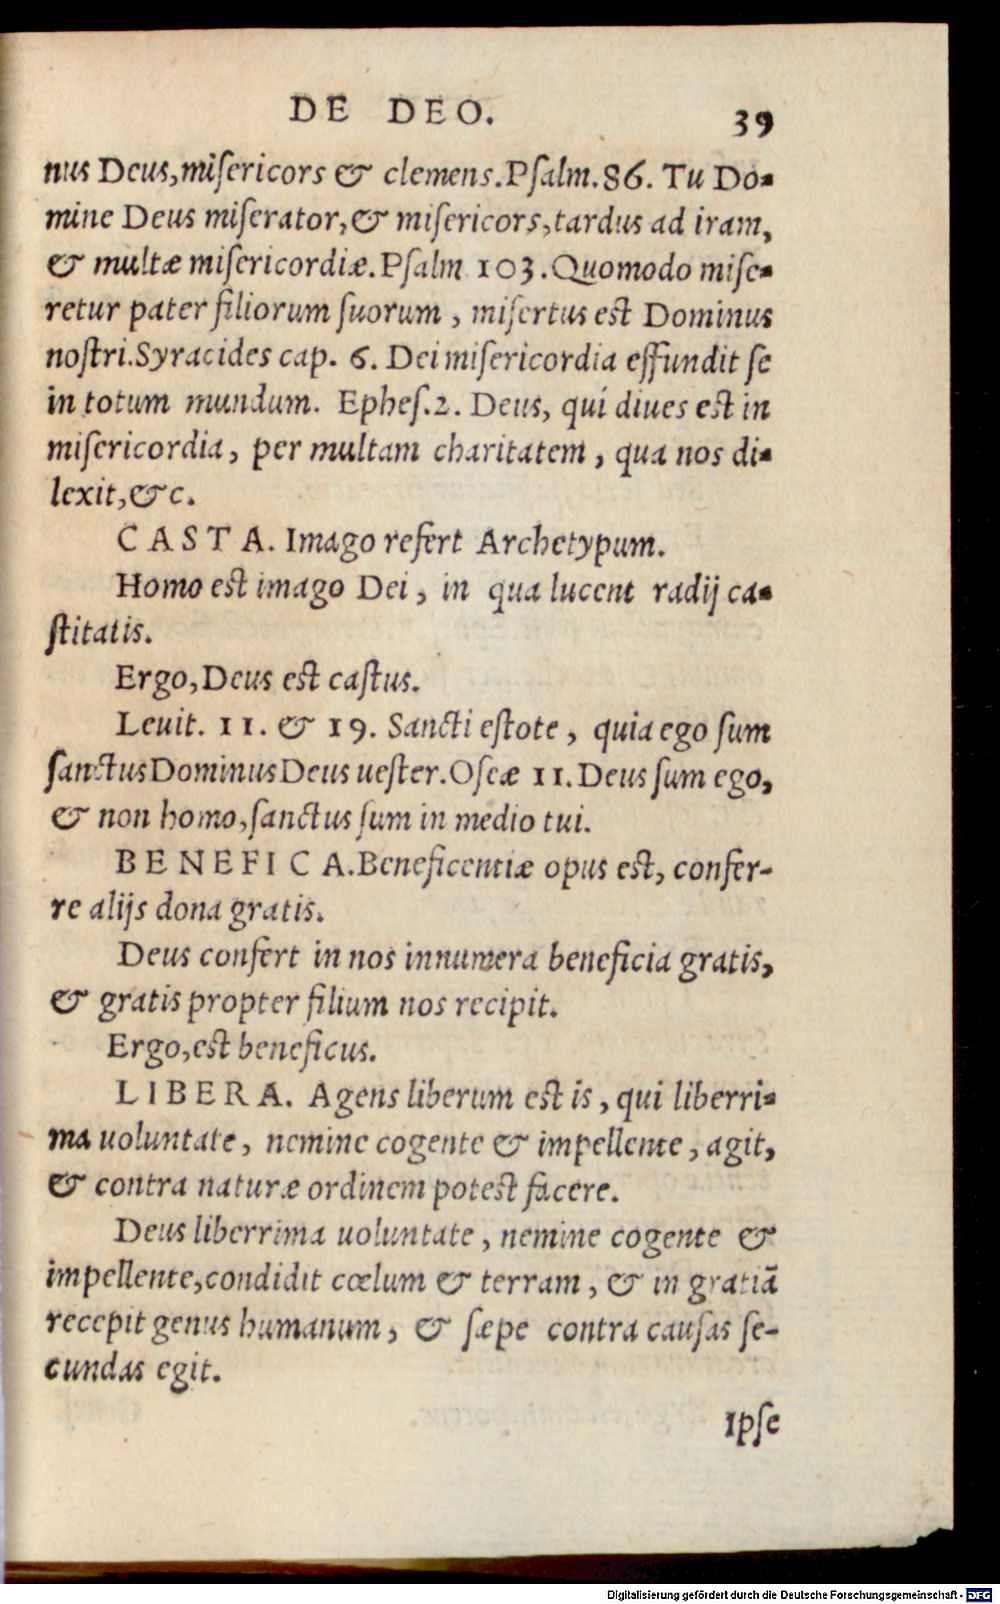 DE DEO.
39
nus Deus, misericors & clemens. Psalm. 86. Tu Do-
mine Deus miserator, & misericors, tardus ad iram,
& multæ misericordiæ. Psalm 103. Quomodo mise-
retur pater filiorum suorum, misertus est Dominus
nostri. Syracides cap. 6. Dei misericordia effundit se
in totum mundum. Ephes. 2. Deus, qui diues est in
misericordia, per multam charitatem, qua nos di-
lexit, &c.
CASTA. Imago refert Archetypum.
Homo est imago Dei, in qua lucent radij ca-
stitatis.
Ergo, Deus est castus.
Leuit. 11. & 19. Sancti estote, quia ego sum
sanctus Dominus Deus uester. Oseæ 11. Deus sum ego,
& non homo, sanctus sum in medio tui.
BENEFICA. Beneficentiæ opus est, confer-
re alijs dona gratis.
Deus confert in nos innumera beneficia gratis,
& gratis propter filium nos recipit.
Ergo, est beneficus.
LIBERA. Agens liberum est is, qui liberri-
ma uoluntate, nemine cogente & impellente, agit,
& contra naturæ ordinem potest facere.
Deus liberrima uoluntate, nemine cogente &
impellente, condidit cœlum & terram, & in gratiã
recepit genus humanum, & sæpe contra causas se-
cundas egit.
Ipse
Digitalisierung gefördert durch die Deutsche Forschungsgemeinschaft - DFG